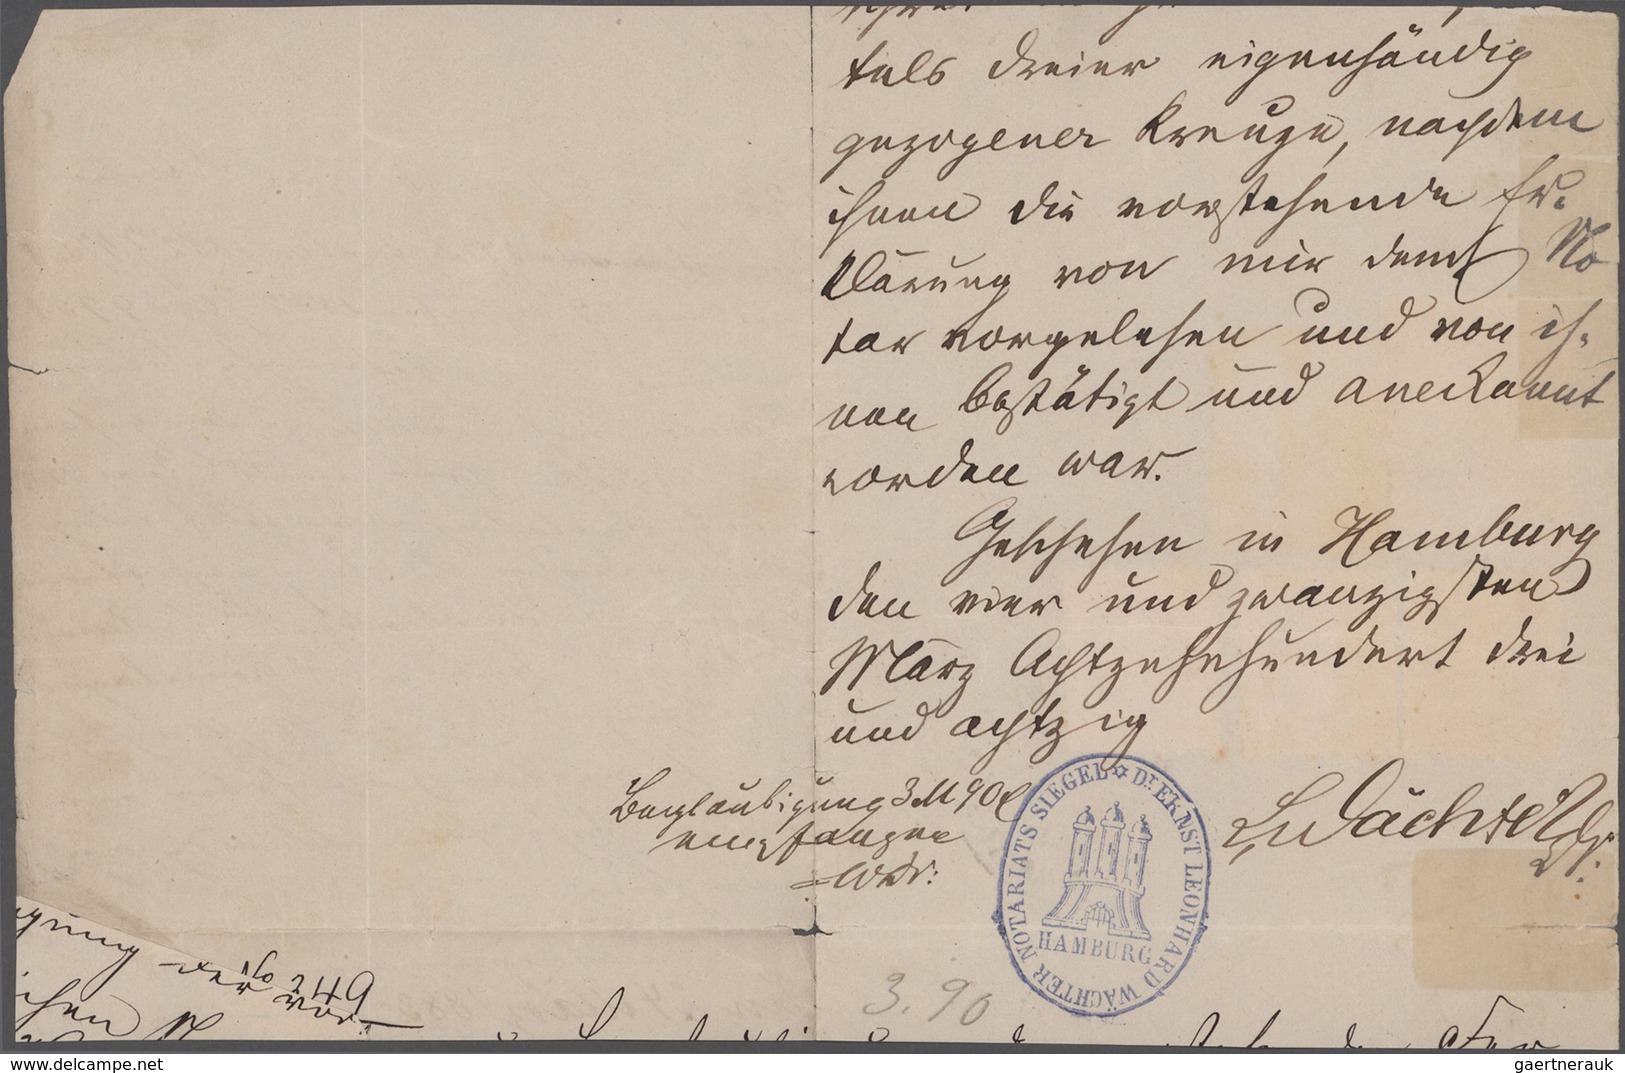 tels dreier eigenhändig
gezogener Kreuze, nachdem
ihnen die vorstehende Er-
klärung von mir dem No
tar vorgelesen und von ih-
nen bestätigt und anerkannt
worden war.
Geschehen in Hamburg
den vier und zwanzigsten
März Achtzehnhundert drei
und achtzig
Beglaubigung 3 M 90
empfangen
Wächter Dr.
NOTARIATS SIEGEL ✡ DR ERNST LEONHARD WÄCHTER
HAMBURG
3.90
No 249
www.delcampe.net
gaertnerauk